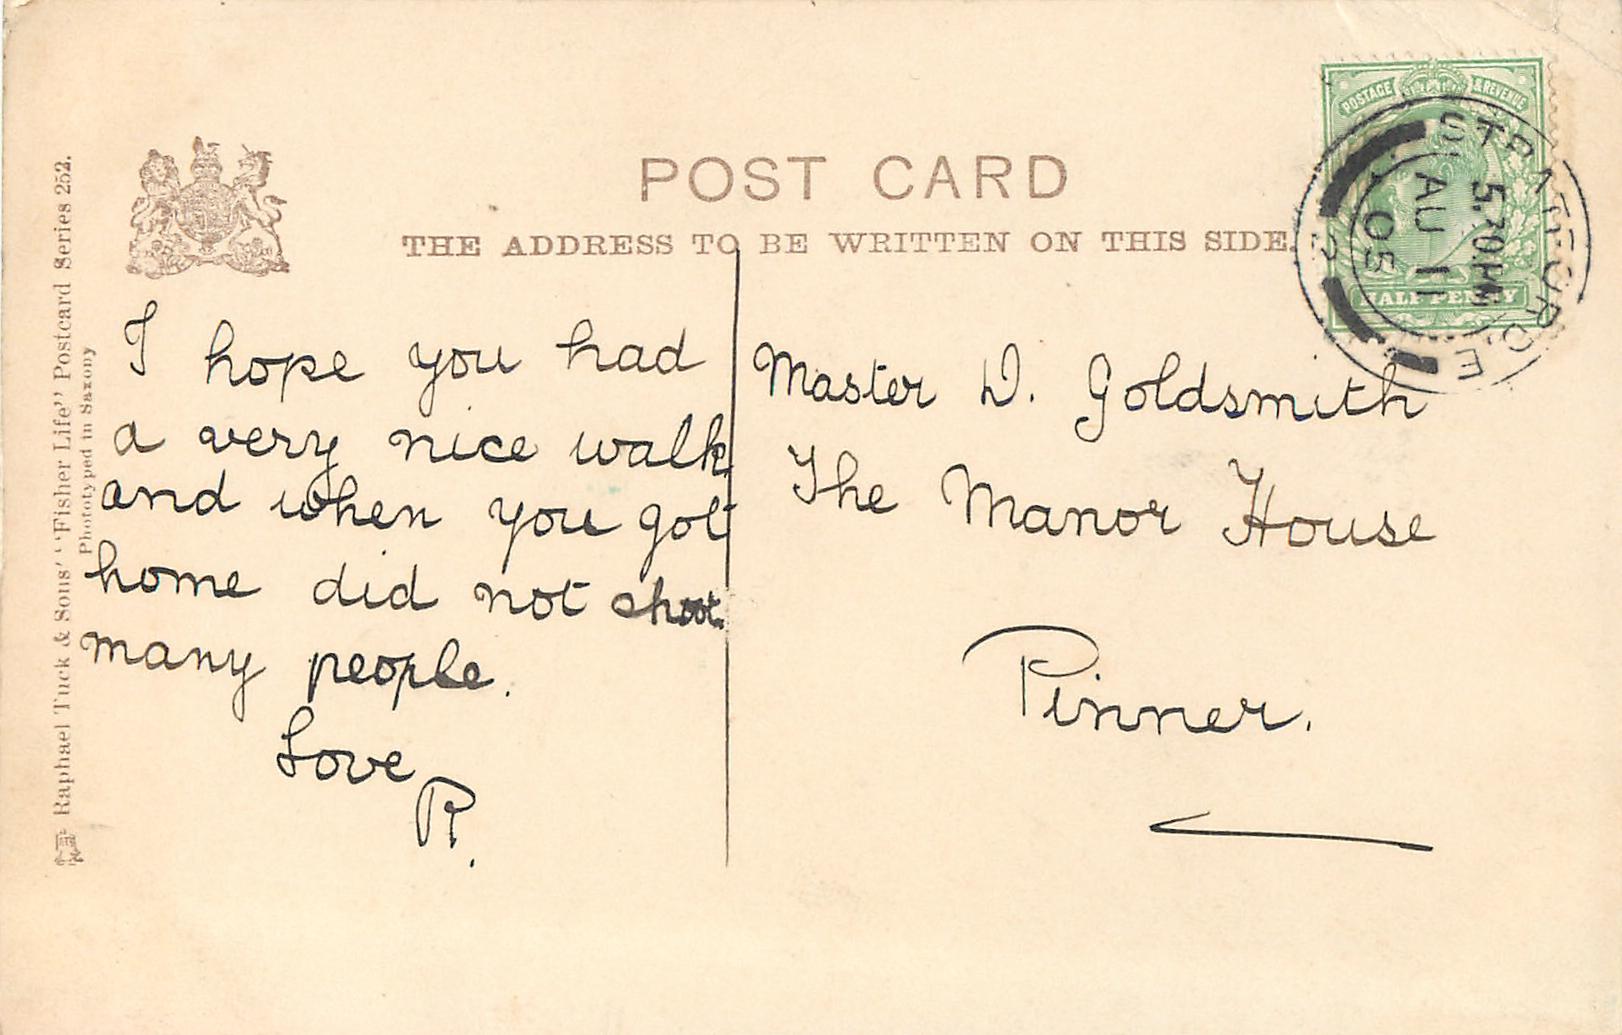 POST CARD
THE ADDRESS TO BE WRITTEN ON THIS SIDE.
Raphael Tuck & Sons' "Fisher Life" Postcard Series 252.
Phototyped in Saxony
POSTAGE & REVENUE
HALF PENNY
STRATFORD. E
5.30PM
AU 11
05
I hope you had
a very nice walk
and when you got
home did not shoot
many people.
Love
R.
Master D. Goldsmith
The Manor House
Pinner.